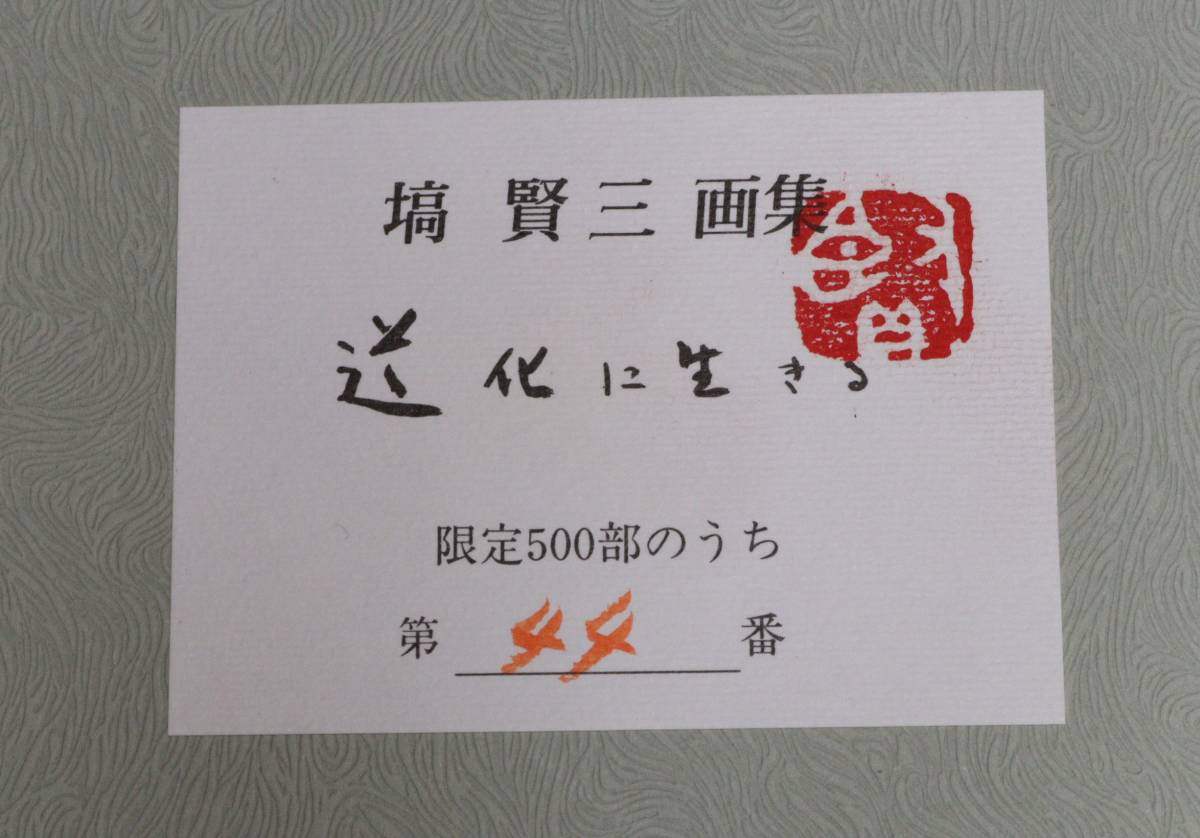 塙 賢三 画集
道化に生きる
限定500部のうち
第 44 番